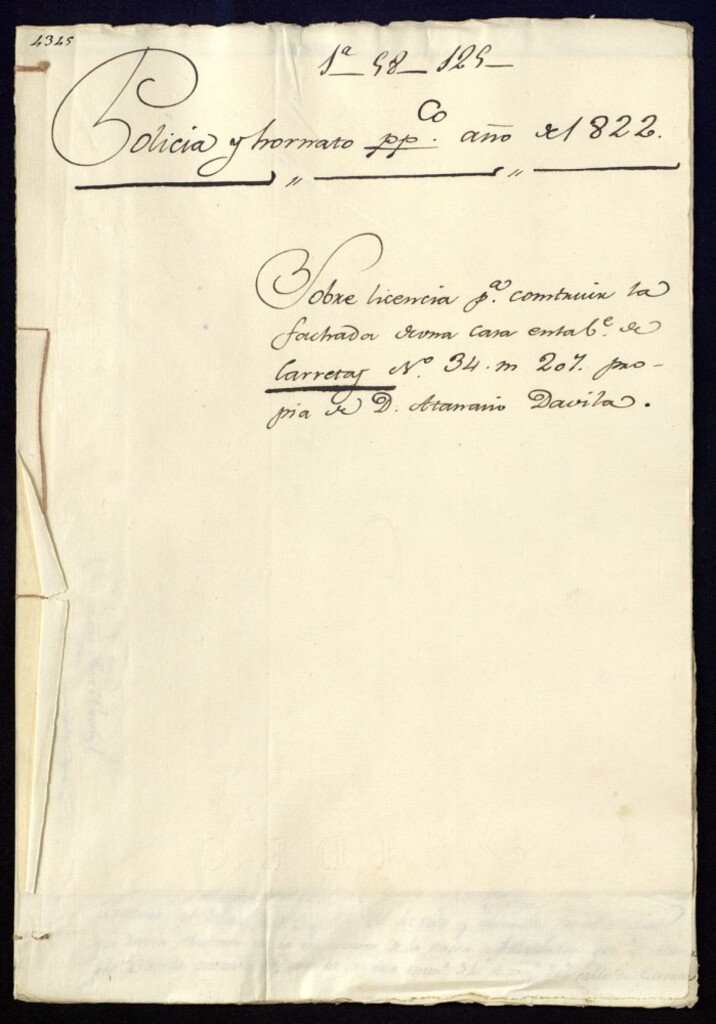 4345
1ª 58 125
Policia y hornato pp.Co año de 1822.
Sobre licencia p.ª construir la
fachada de una casa en la b.e de
Carretas N.º 34. m 207. pro-
pia de D. Atanasio Davila.